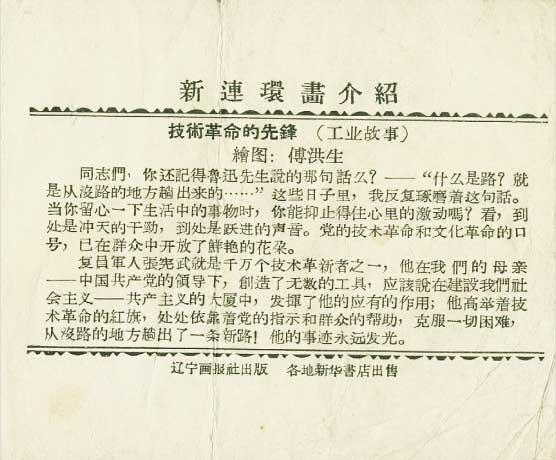 新連環畫介紹
技術革命的先鋒 （工业故事）
繪图：傅洪生
同志們，你还記得魯迅先生說的那句話么？——“什么是路？就
是从沒路的地方趟出来的……”这些日子里，我反复琢磨着这句話。
当你留心一下生活中的事物时，你能抑止得住心里的激动嗎？看，到
处是冲天的干劲，到处是跃进的声音。党的技术革命和文化革命的口
号，已在群众中开放了鮮艳的花朵。
复員軍人張宪武就是千万个技术革新者之一，他在我們的母亲
——中国共产党的領导下，創造了无数的工具，应該說在建設我們社
会主义——共产主义的大厦中，发揮了他的应有的作用；他高举着技
术革命的紅旗，处处依靠着党的指示和群众的帮助，克服一切困难，
从沒路的地方趟出了一条新路！他的事迹永远发光。
辽宁画报社出版 各地新华書店出售